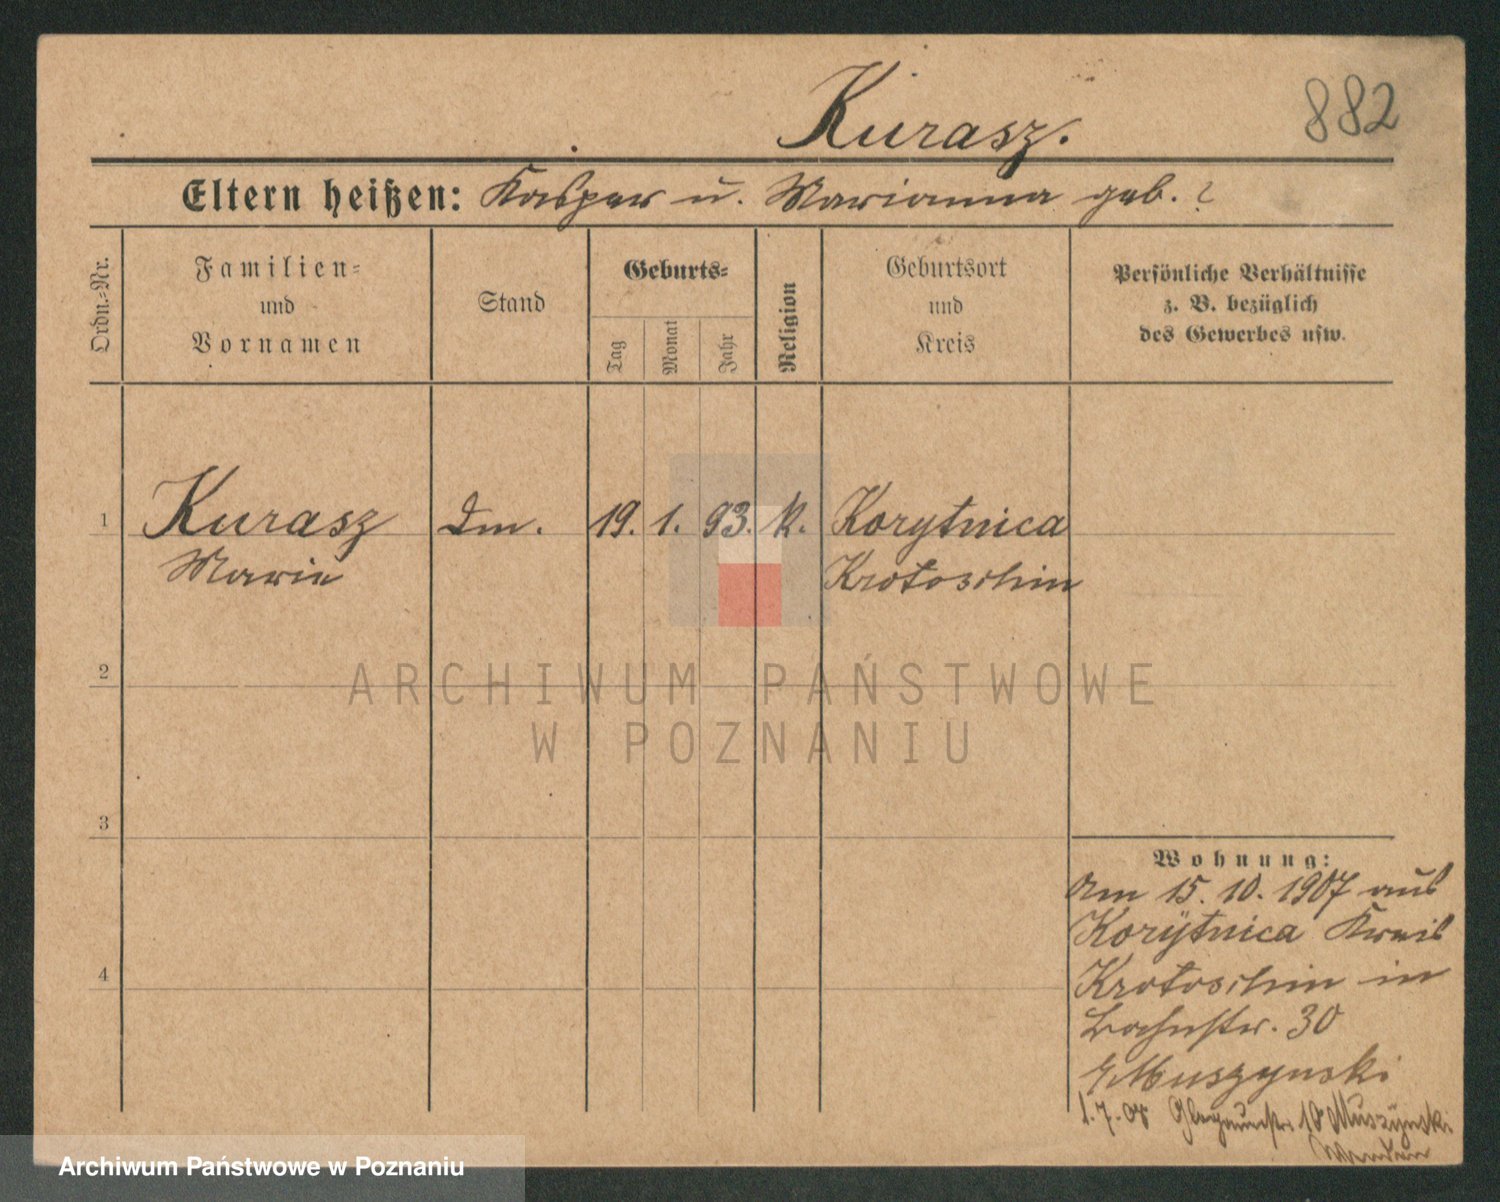 Kurasz.
882
Eltern heißen: Kasper u. Marianna geb. ?
Ordn.=Nr.
Familien=
und
Vornamen
Stand
Geburts=
Tag
Monat
Jahr
Religion
Geburtsort
und
Kreis
Persönliche Verhältnisse
z. B. bezüglich
des Gewerbes usw.
1 Kurasz Dm. 19. 1. 93. k. Korytnica
Marie Krotoschin
2
3
4
Wohnung:
Am 15. 10. 1907 aus
Korytnica Kreis
Krotoschin in
Bahnstr. 30
Muszynski
1.7.08 10 Muszynski
ARCHIWUM PAŃSTWOWE
W POZNANIU
Archiwum Państwowe w Poznaniu